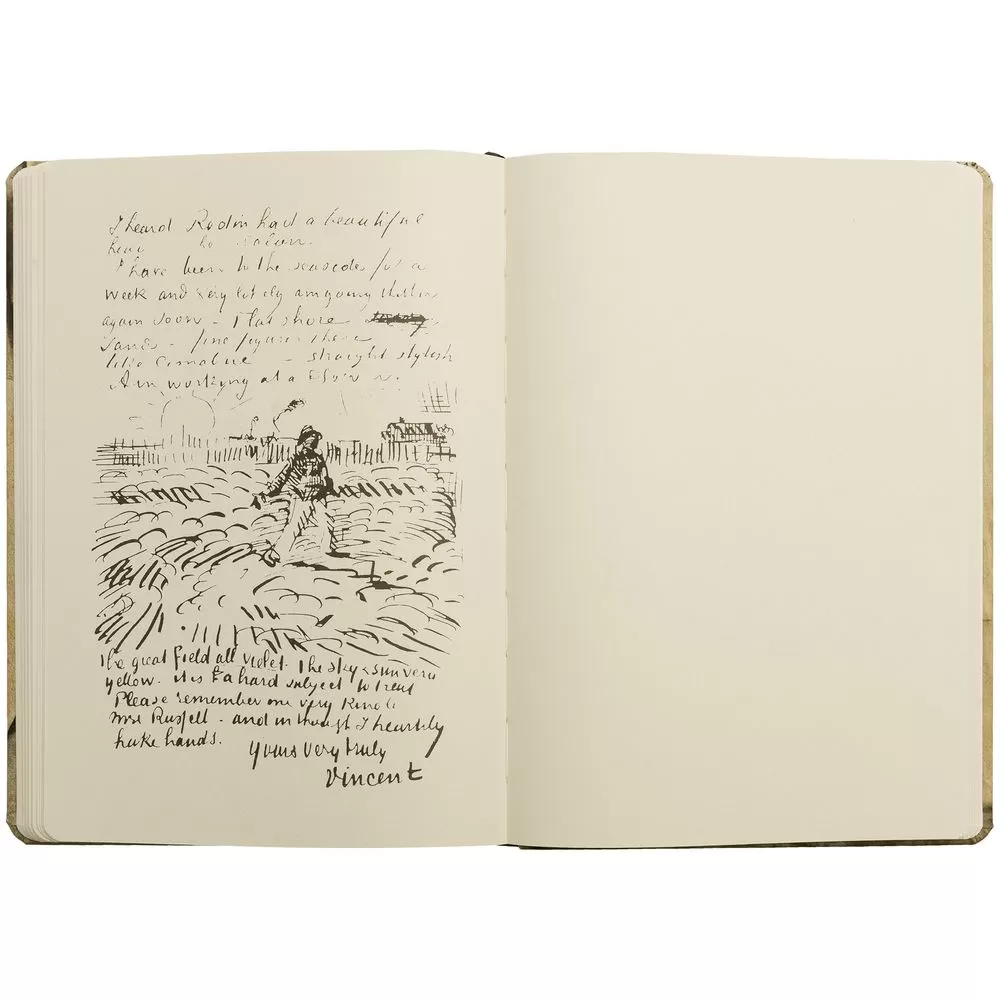 I heard Rodin had a beautiful
head
I have been to the seaside for a
week and very likely am going thither
again soon - Flat shore
sands - fine figures there
like Cimabue - straight stylish
Am working at a Sower.
the great field all violet. the sky & sun very
yellow. it is a hard subject to treat
Please remember me very kindly
mrs Russell - and in thought I heartily
shake hands.
yours very truly
Vincent